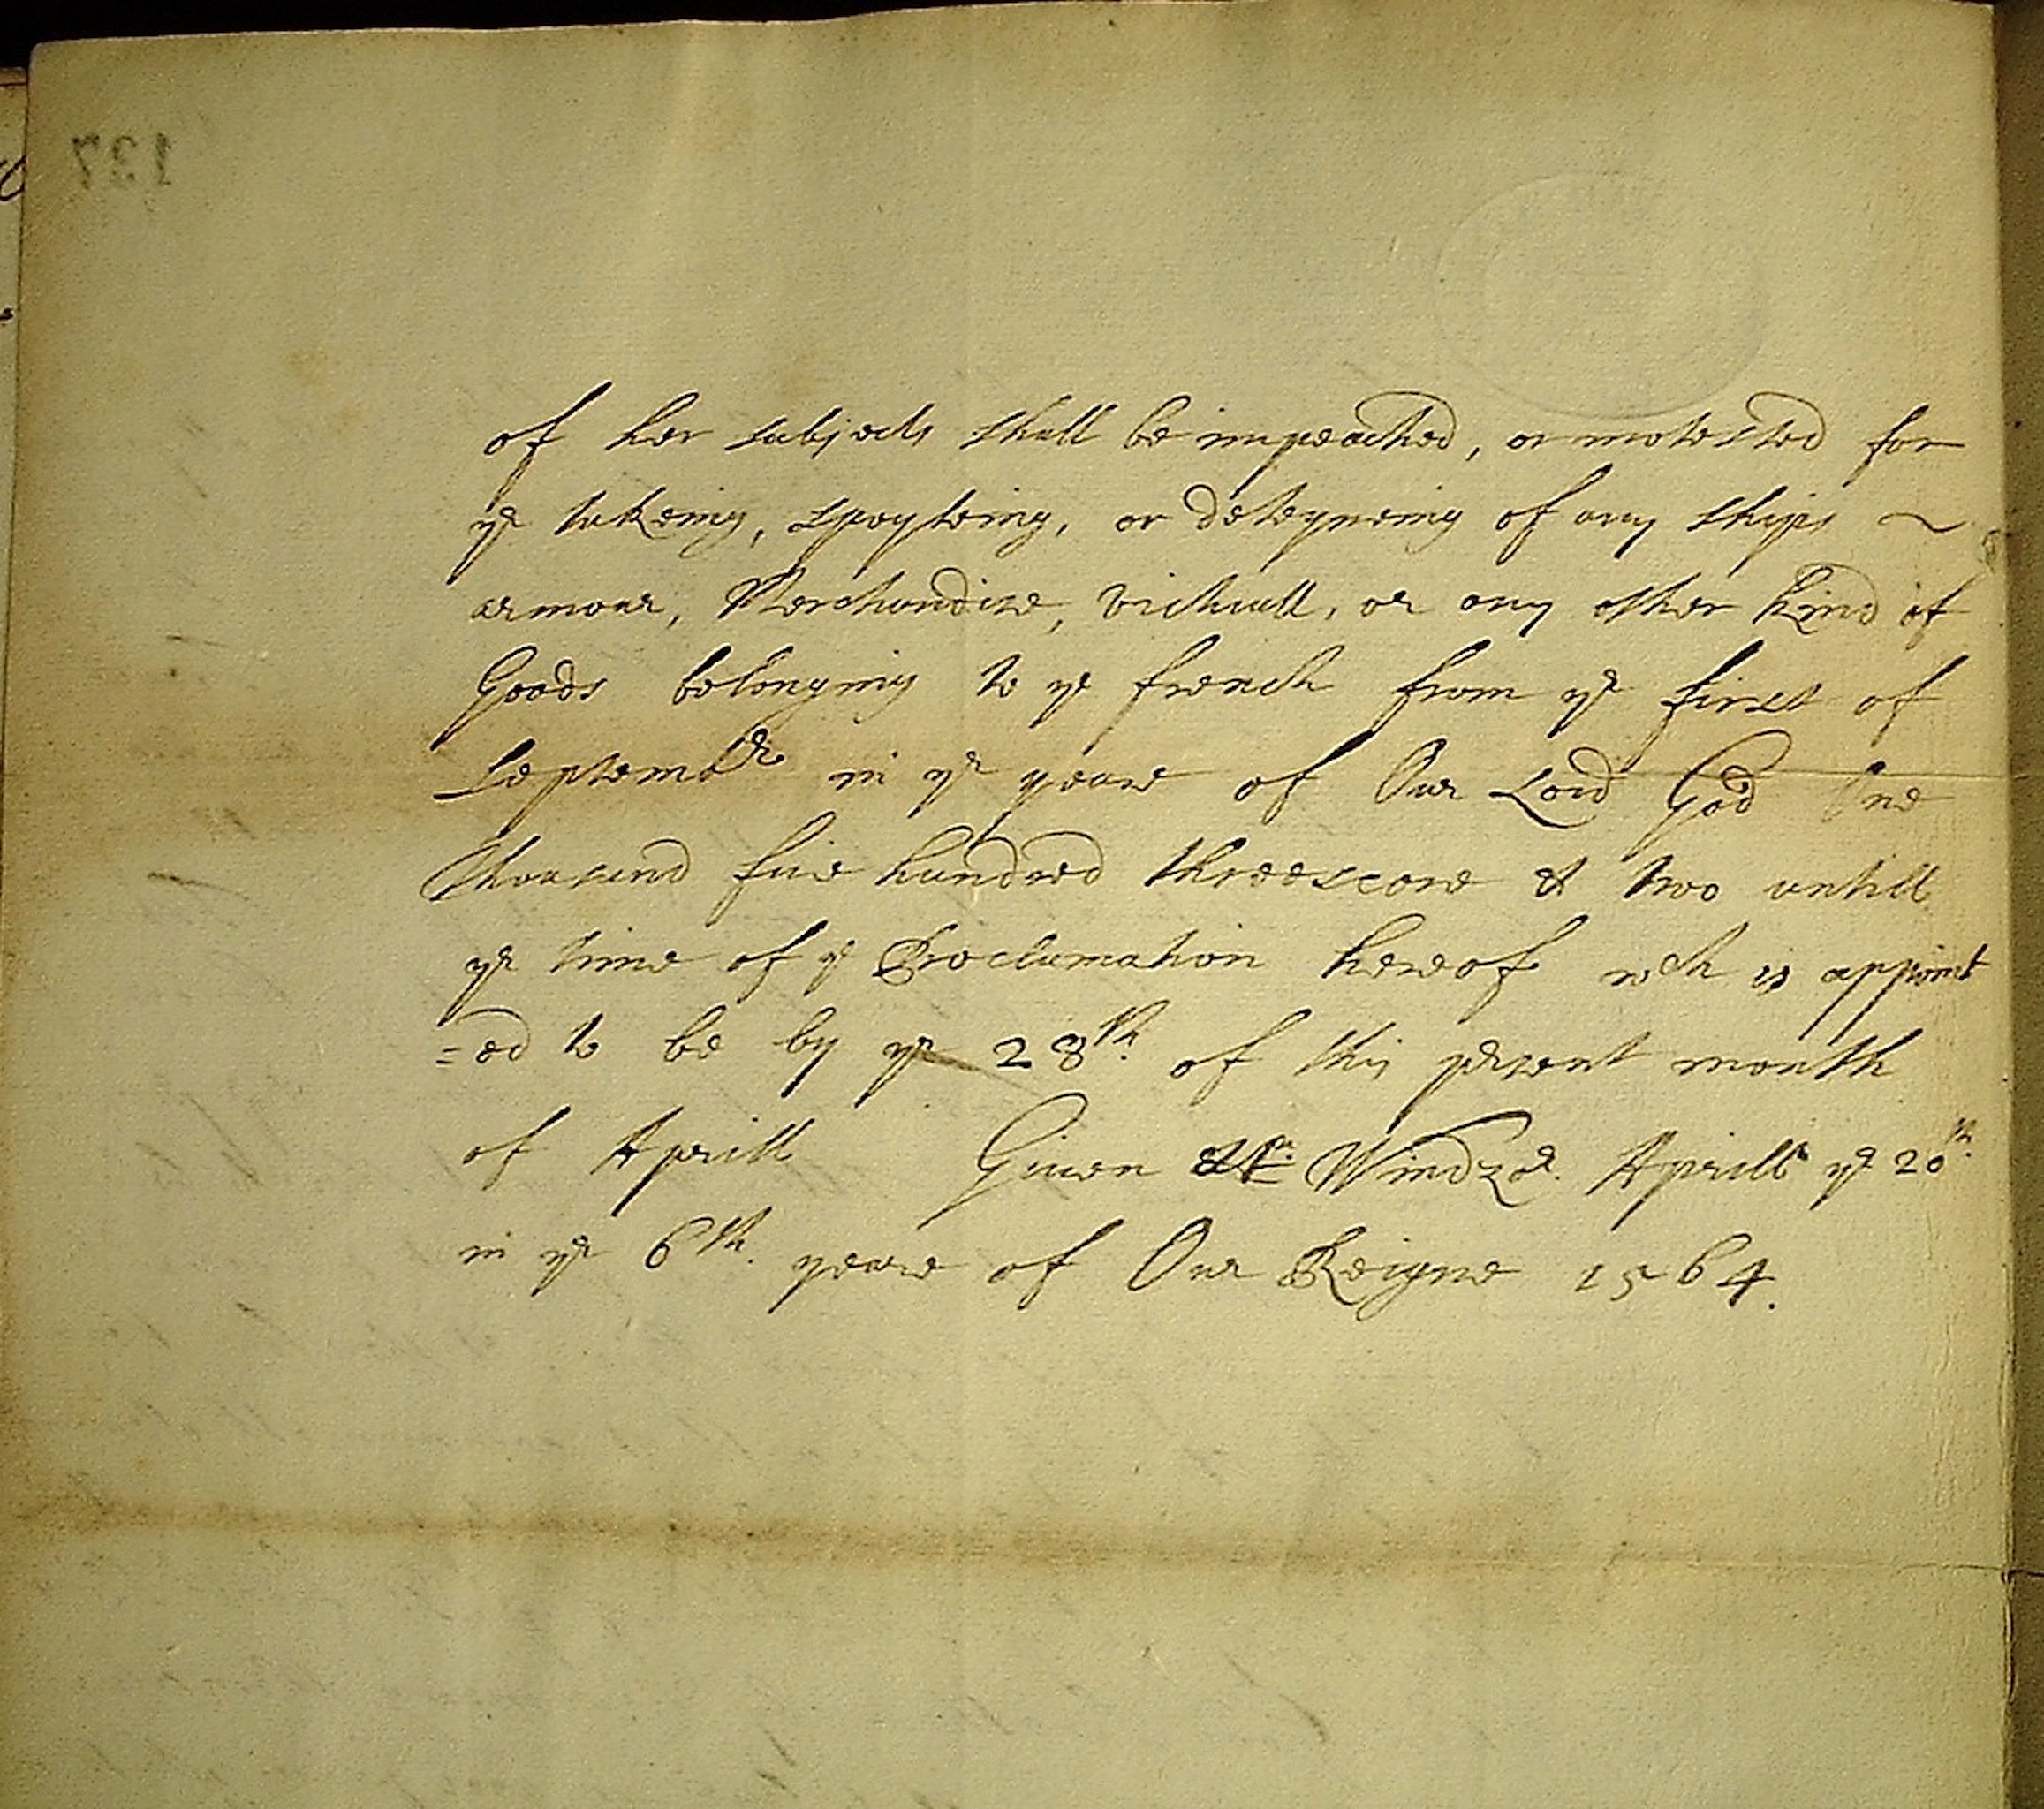 of her subjects shall be impeached, or molested for
ye takeing, spoyleing, or deteyneing of any ships ~
armour, Merchandize, victuall, or any other kind of
Goods belonging to ye french from ye first of
Septembr in ye yeare of Our Lord God One
thousand five hundred threescore & two untill
ye time of ye Proclamation hereof wch is appoint
=ed to be by ye 28th. of this present month
of Aprill Given Windzor. Aprill ye 20th.
in ye 6th. yeare of Our Reigne 1564.
137